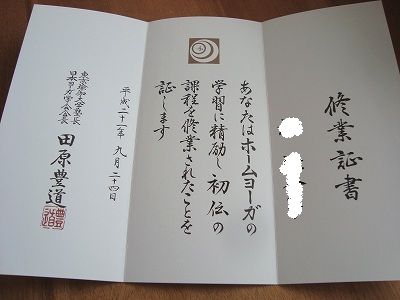 修業証書
あなたはホームヨーガの
学習に精励し初伝の
課程を修業されたことを
証します
平成二十一年 九月二十四日
日本ヨーガ学会会長
田原豊道